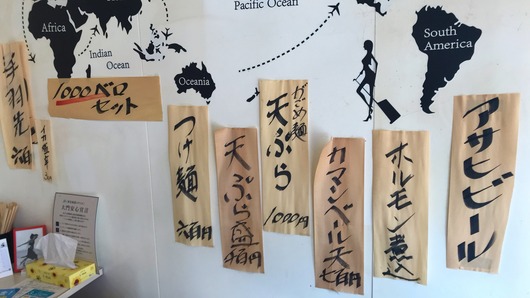 Pacific Ocean
Africa
Indian
Ocean
Oceania
South
America
手羽先
1000ベロ
セット
つけ麺 六百円
天ぷら盛
がごめ麺
天ぷら
1000円
カマンベール天
七百円
ホルモン煮込
アサヒビール